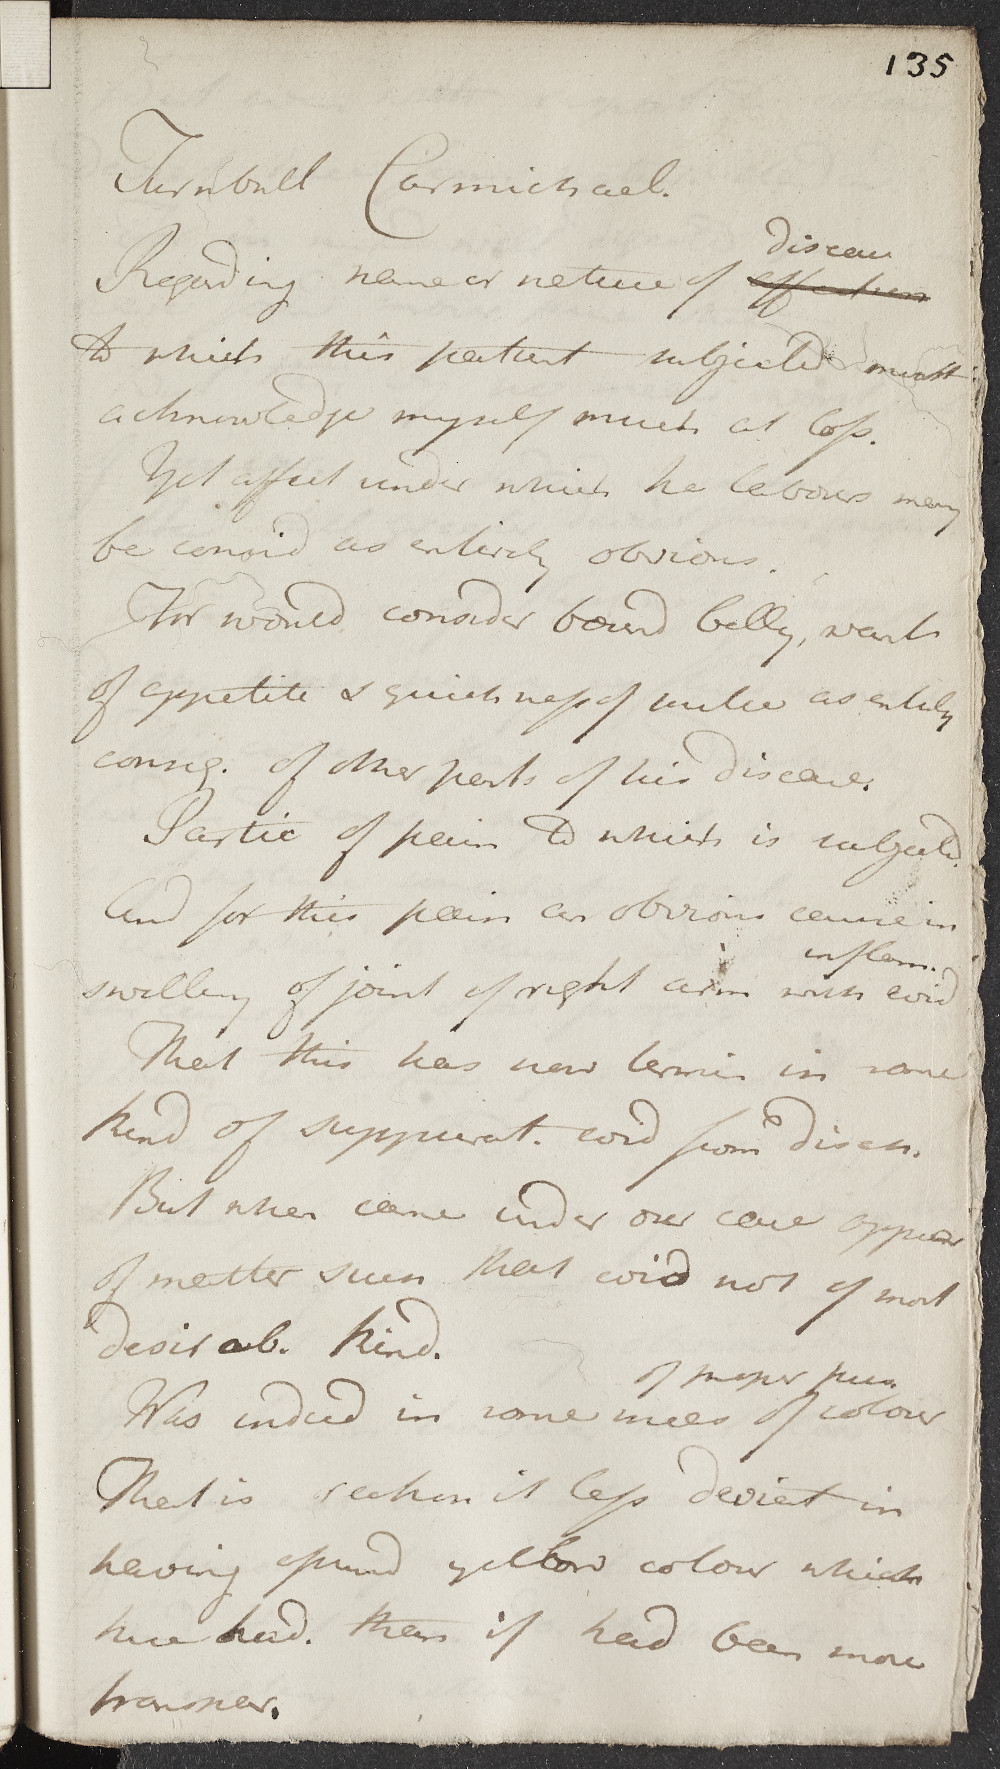 135
Turnbull Carmichael.
disease
Regarding name or nature of affection
to which this patient subjected must
acknowledge myself much at loss.
Yet affect under which he labours may
be consid as entirely obvious.
For would consider bound belly, want
of appetite & quickness of pulse as entirely
conseq. of other parts of his disease.
Partic of pain to which is subjected.
And for this pain an obvious cause in
inflam.
swelling of joint of right arm with evid
That this has now termin in some
kind of suppurat. evid from disch.
But when came under our care appear
of matter such that evid not of most
desirab. kind.
of proper pus.
Was indeed in some meas of colour
That is reckon it less deviat in
having yellow colour which
here had. than if had been more
transpar.